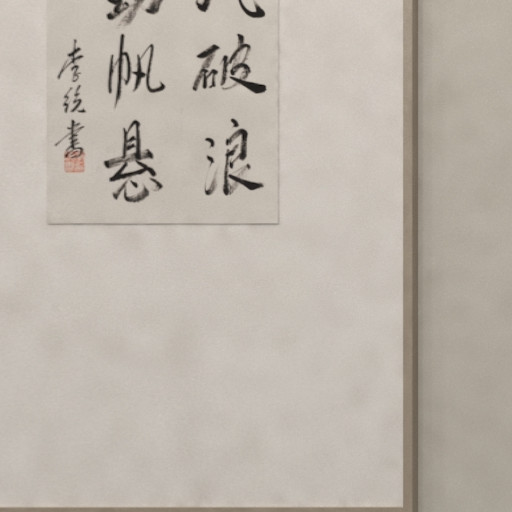 破浪
帆悬
李
書